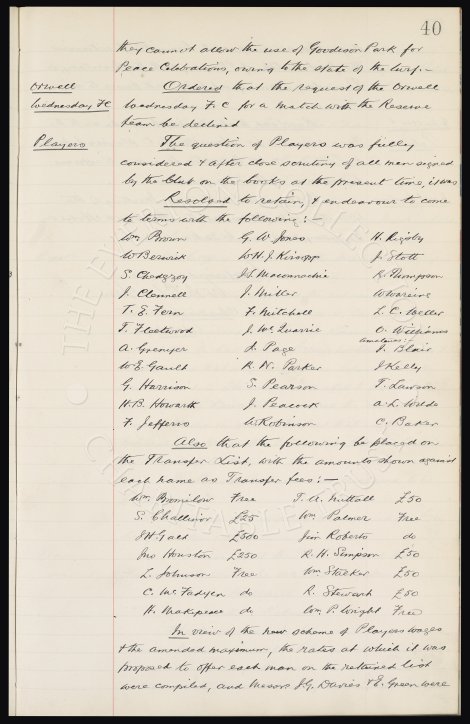 40
they cannot allow the use of Goodison Park for
Peace Celebrations, owing to the state of the turf.–
Orwell Wednesday FC
Ordered that the request of the Orwell
Wednesday F.C for a match with the Reserve
team be declined
Players
The question of Players was fully
considered & after close scrutiny of all men signed
by the Club on the books at the present time, it was
Resolved to retain, & endeavour to come
to terms with the following:–
Wm Brown G. W. Jones H. Rigsby
W Berwick W H. J. Kirsopp J. Stott
S. Chedgzoy J S. Maconnachie R. Thompson
J. Clennell J. Miller W Warine
T. E. Fern F. Mitchell L. C. Weller
T. Fleetwood J. McQuarrie O. Williams
amateurs:-
A. Grenyer J. Page J. Blair
W. E. Gault R. W. Parker J Kelly
G. Harrison S. Pearson T. Lawson
H. B. Howarth J. Peacock A. L. Welds
F. Jefferis A. Robinson C. Baker
Also that the following be placed on
the Transfer List, with the amounts shown against
each name as Transfer fees:–
Wm Bromilow Free T. A. Nuttall £50
S. Challinor £25 Wm Palmer Free
J H Galt £300 Jim Roberts do
Jno Houston £250 R. H. Simpson £50
L. Johnson Free Wm Stalker £50
C. McFadyen do R. Stewart £50
H. Makepeace do Wm P. Wright Free
In view of the new scheme of Players wages
& the amended maximum, the rates at which it was
proposed to offer each man on the retained list
were compiled, and Messrs J.G. Davies & E. Green were
THE EVERTON COLLECTION
CHARITABLE TRUST